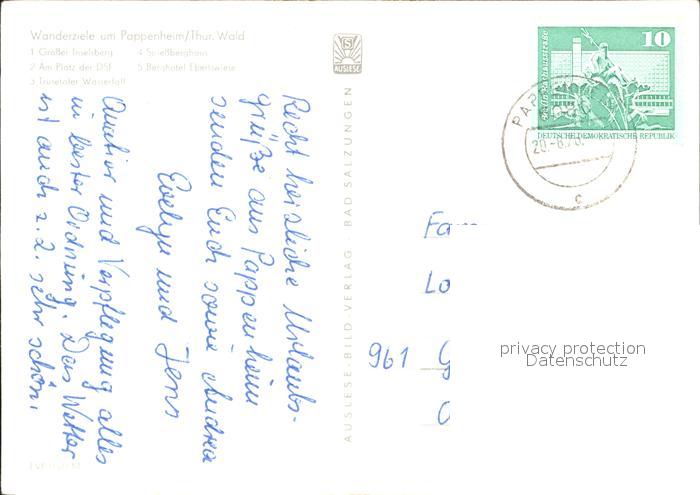 Wanderziele um Pappenheim/Thür. Wald
1 Großer Inselsberg 4 Spießberghaus
2 Am Platz der DSF 5 Berghotel Ebertswiese
3 Trusetaler Wasserfall
Recht herzliche Urlaubs-
grüße aus Pappenheim
senden Euch sowie Andrea
Evelyn und Jens
Quatier und Verpflegung alles
in bester Ordnung. Das Wetter
ist auch z. Z. sehr schön.
AUSLESE
AUSLESE-BILD-VERLAG · BAD SALZUNGEN
10
DEUTSCHE DEMOKRATISCHE REPUBLIK
20.-8.76.
c
Fa
Lo
961 G
privacy protection
Datenschutz